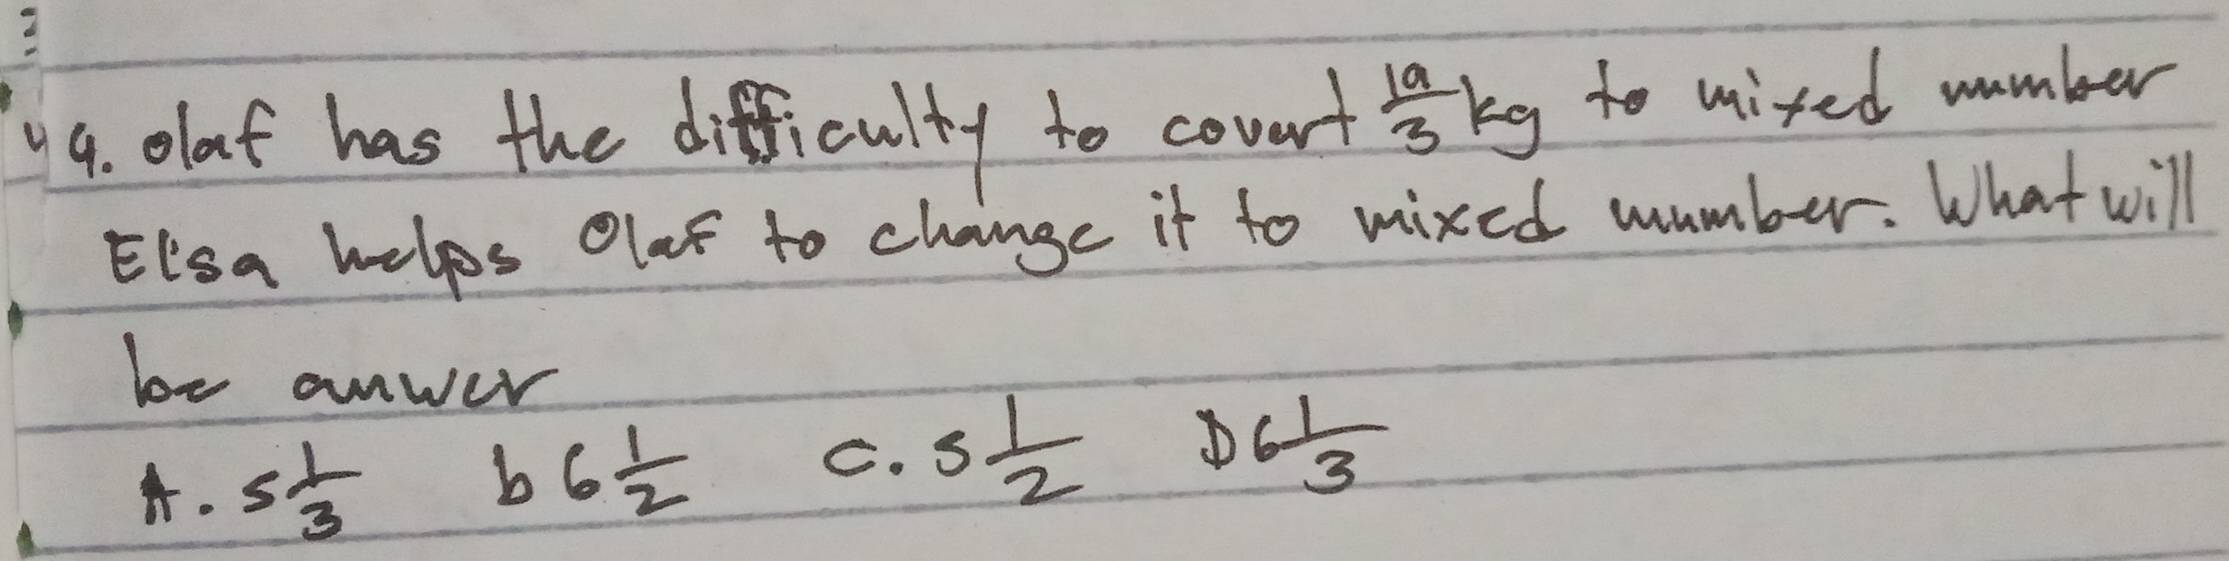 49. Olaf has the difficulty to covert 19/3 kg to mixed number
Elsa helps Olaf to change it to mixed number. What will
be anwer
A. 5 1/3 b 6 1/2 C. 5 1/2 D 6 1/3